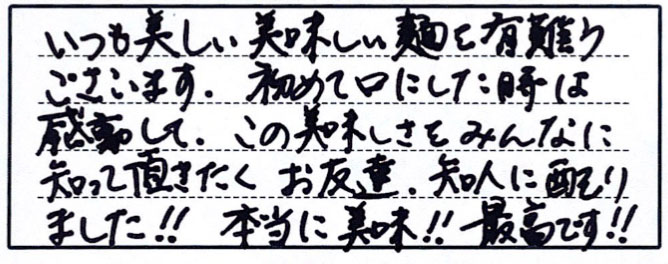 いつも美しい美味しい麺を有難う
ございます. 初めて口にした時は
感動して、この美味しさをみんなに
知って頂きたく お友達、知人に配り
ました!! 本当に美味!! 最高です!!